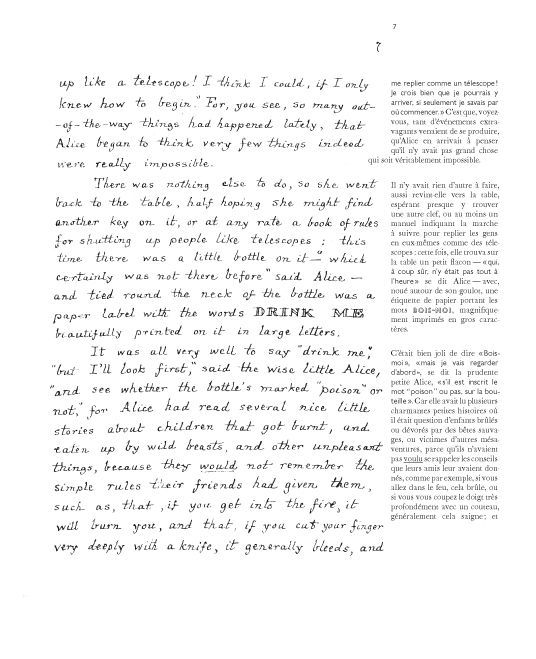 7
7
up like a telescope! I think I could, if I only
knew how to begin." For, you see, so many out-
-of-the-way things had happened lately, that
Alice began to think very few things indeed
were really impossible.
There was nothing else to do, so she went
back to the table, half hoping she might find
another key on it, or at any rate a book of rules
for shutting up people like telescopes: this
time there was a little bottle on it—"which
certainly was not there before" said Alice—
and tied round the neck of the bottle was a
paper label with the words DRINK ME
beautifully printed on it in large letters.
It was all very well to say "drink me,"
"but I'll look first," said the wise little Alice,
"and see whether the bottle's marked "poison" or
not," for Alice had read several nice little
stories about children that got burnt, and
eaten up by wild beasts, and other unpleasant
things, because they would not remember the
simple rules their friends had given them,
such as, that, if you get into the fire, it
will burn you, and that, if you cut your finger
very deeply with a knife, it generally bleeds, and
me replier comme un télescope!
Je crois bien que je pourrais y
arriver, si seulement je savais par
où commencer.» C'est que, voyez-
vous, tant d'événements extra-
vagants venaient de se produire,
qu'Alice en arrivait à penser
qu'il n'y avait pas grand chose
qui soit véritablement impossible.
Il n'y avait rien d'autre à faire,
aussi revint-elle vers la table,
espérant presque y trouver
une autre clef, ou au moins un
manuel indiquant la marche
à suivre pour replier les gens
en eux-mêmes comme des téle-
scopes: cette fois, elle trouva sur
la table un petit flacon — «qui,
à coup sûr, n'y était pas tout à
l'heure» se dit Alice — avec,
noué autour de son goulot, une
étiquette de papier portant les
mots BOIS-MOI, magnifique-
ment imprimés en gros carac-
tères.
C'était bien joli de dire «Bois-
moi», «mais je vais regarder
d'abord», se dit la prudente
petite Alice, «s'il est inscrit le
mot "poison" ou pas, sur la bou-
teille». Car elle avait lu plusieurs
charmantes petites histoires où
il était question d'enfants brûlés
ou dévorés par des bêtes sauva-
ges, ou victimes d'autres mésa-
ventures, parce qu'ils n'avaient
pas voulu se rappeler les conseils
que leurs amis leur avaient don-
nés, comme par exemple, si vous
allez dans le feu, cela brûle, ou
si vous vous coupez le doigt très
profondément avec un couteau,
généralement cela saigne; et